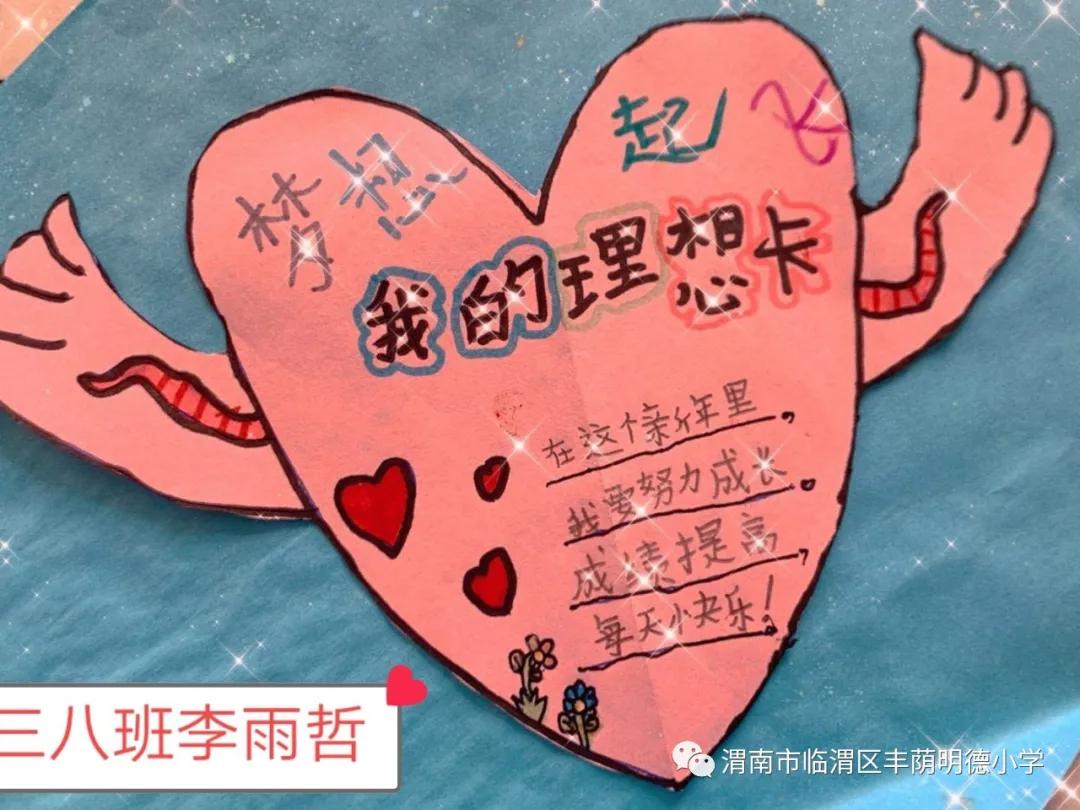 梦想
起飞
我的理想卡
在这个新年里，
我要努力成长。
成绩提高，
每天快乐！
三八班李雨哲
渭南市临渭区丰荫明德小学